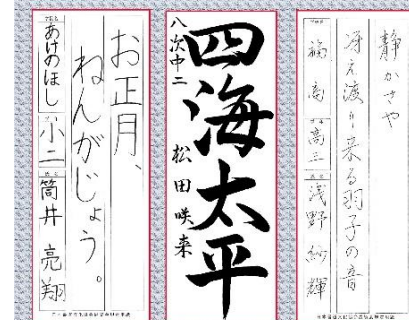 静かさや
冴え渡り来る羽子の音
高三
浅野 紗輝
四海太平
八次中二 松田咲来
お正月、
ねんがじょう。
あけのほし 小二 筒井 亮翔